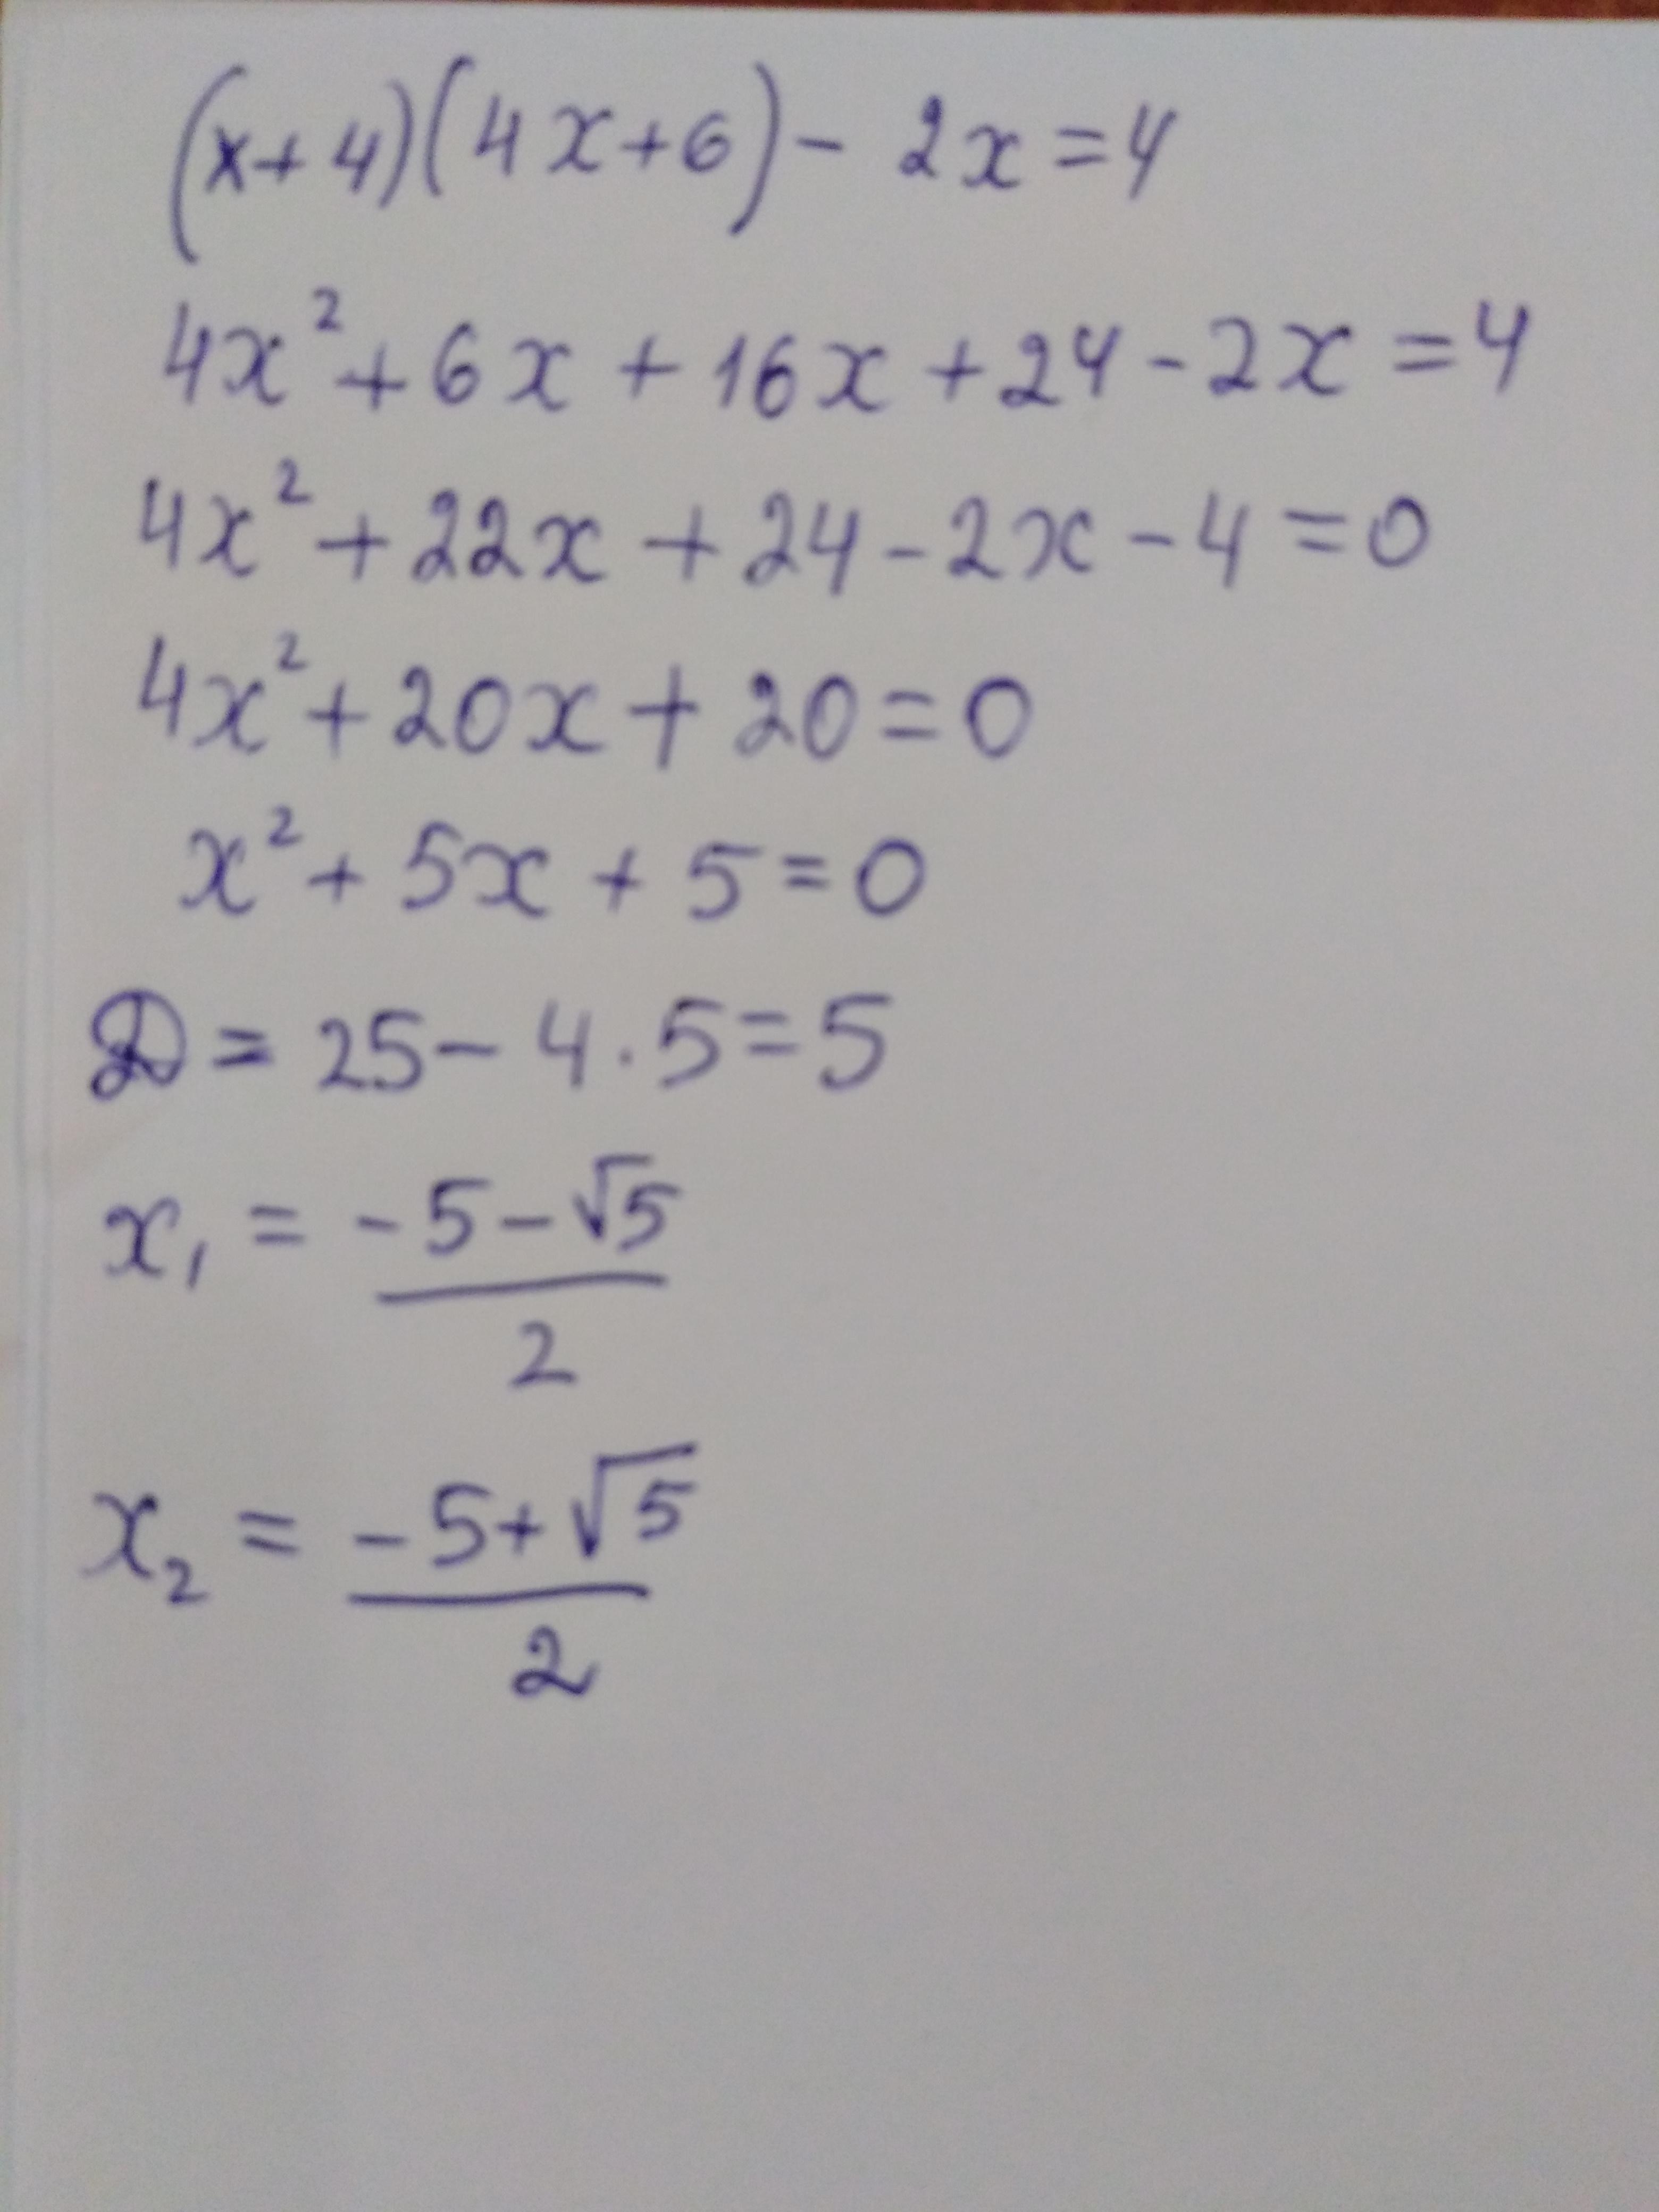 (x+4)(4x+6) - 2x = 4
4x² + 6x + 16x + 24 - 2x = 4
4x² + 22x + 24 - 2x - 4 = 0
4x² + 20x + 20 = 0
x² + 5x + 5 = 0
D = 25 - 4 · 5 = 5
x₁ = (-5 - √5) / 2
x₂ = (-5 + √5) / 2